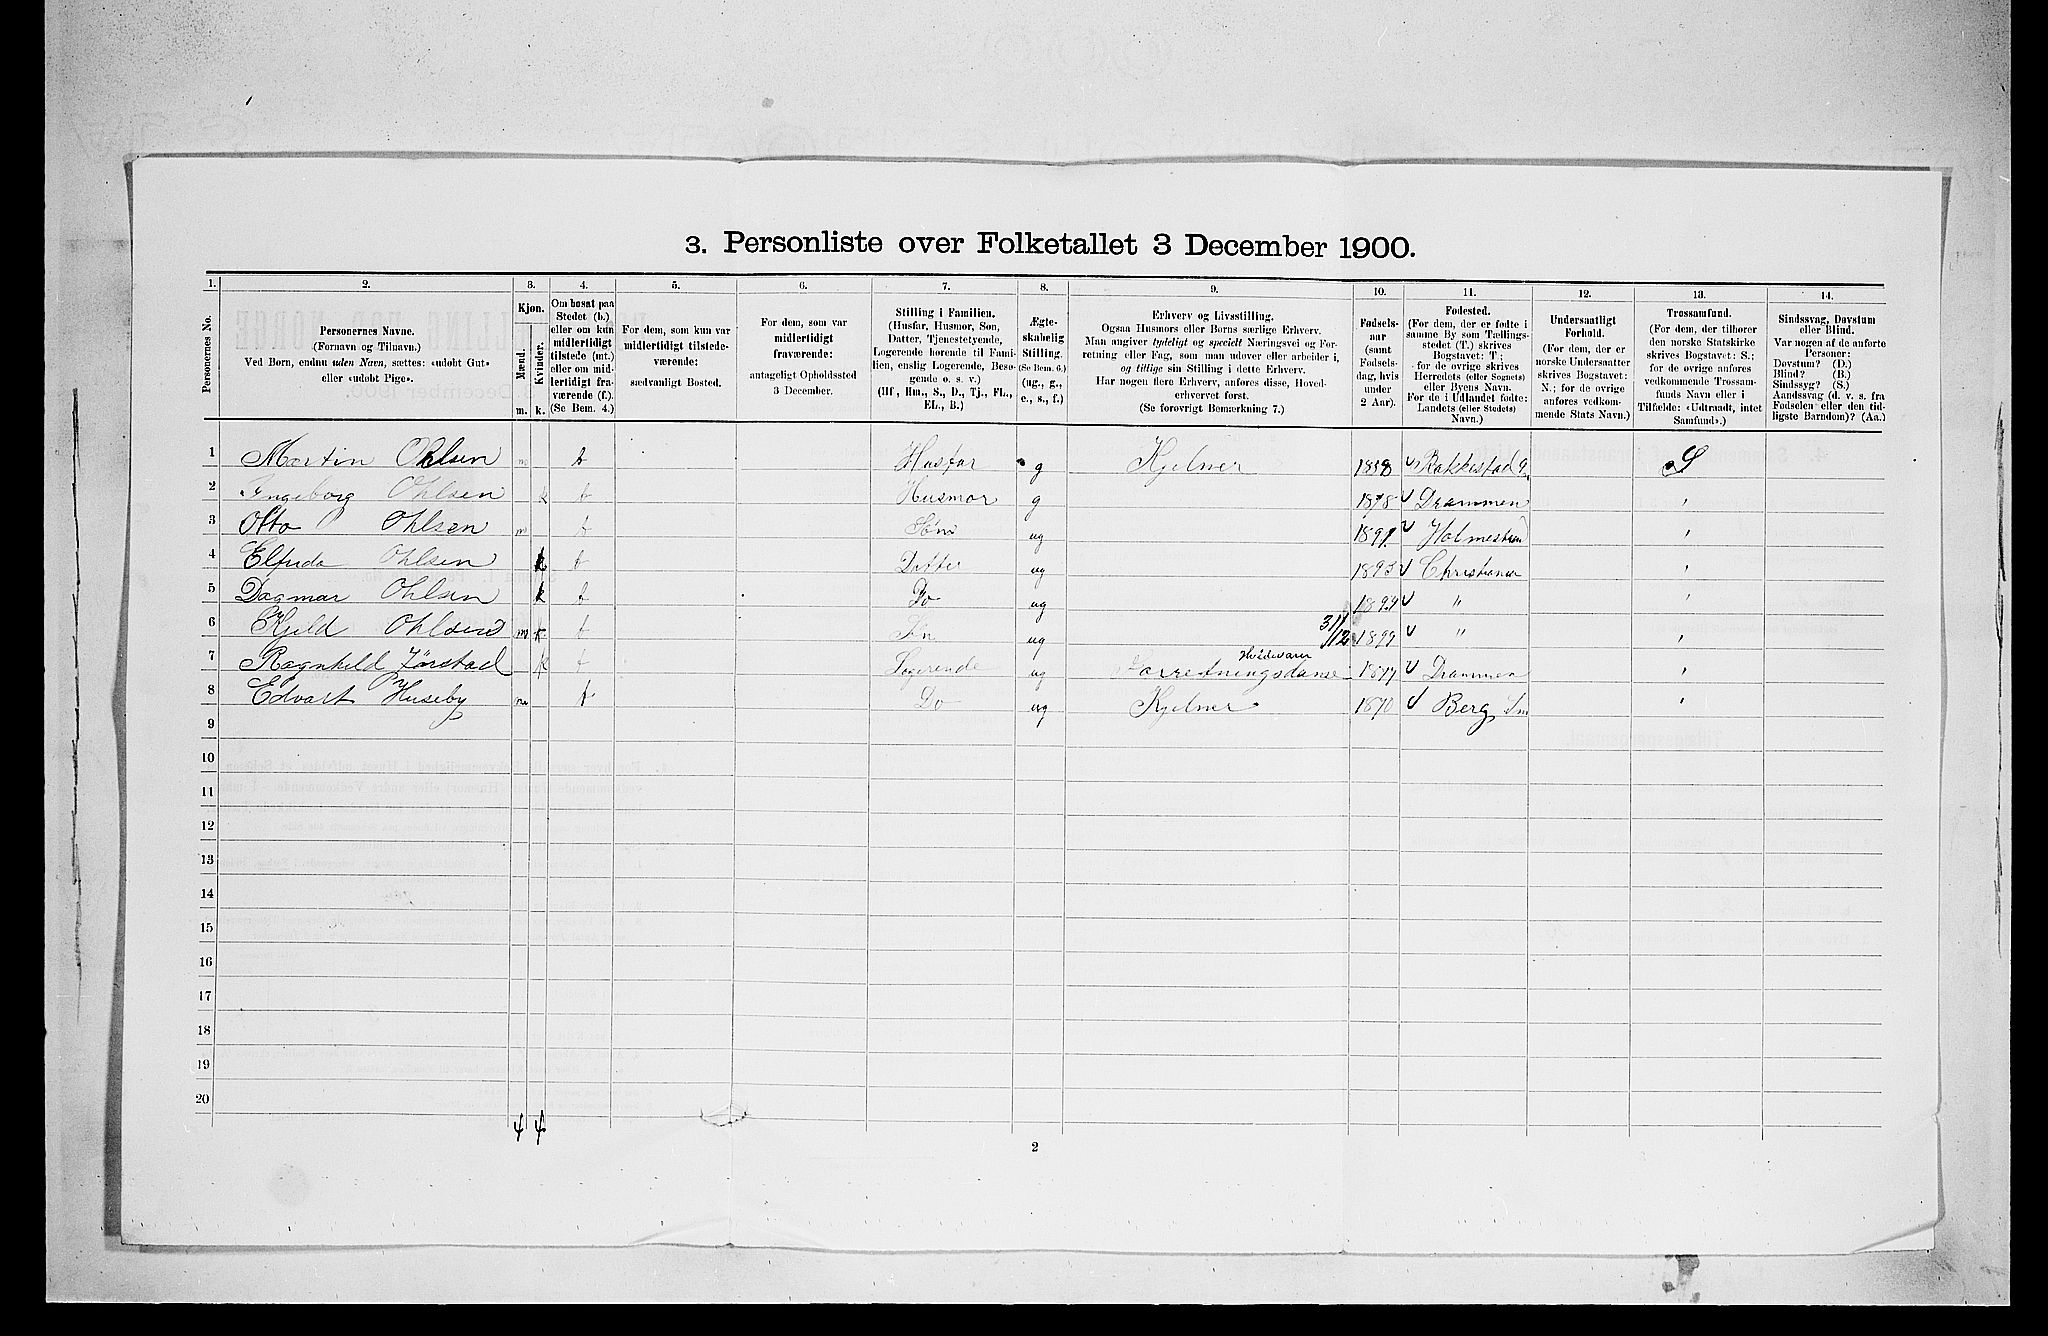 3. Personliste over Folketallet 3 December 1900.
1. 2. 3. 4. 5. 6. 7. 8. 9. 10. 11. 12. 13. 14.
Personernes No.
Personernes Navne.
(Fornavn og Tilnavn.)
Ved Børn, endnu uden Navn, sættes: «udøbt Gut»
eller «udøbt Pige».
Kjøn.
Mænd.
Kvinder.
m. k.
Om bosat paa
Stedet (b.)
eller om kun
midlertidigt
tilstede (mt.)
eller om mid-
lertidigt fra-
værende (f.).
(Se Bem. 4.)
For dem, som kun var
midlertidigt tilstede-
værende:
sædvanligt Bosted.
For dem, som var
midlertidigt
fraværende:
antageligt Opholdssted
3 December.
Stilling i Familien.
(Husfar, Husmor, Søn,
Datter, Tjenestetyende,
Logerende hørende til Fami-
lien, enslig Logerende, Besø-
gende o. s. v.)
(Hf, Hm., S., D., Tj., FL.,
EL., B.)
Ægte-
skabelig
Stilling.
(Se Bem. 6.)
(ug., g.,
e., s., f.)
Erhverv og Livsstilling.
Ogsaa Husmors eller Børns særlige Erhverv.
Man angiver tydeligt og specielt Næringsvei og For-
retning eller Fag, som man udøver eller arbeider i,
og tillige sin Stilling i dette Erhverv.
Har nogen flere Erhverv, anføres disse, Hoved-
erhvervet først.
(Se forøvrigt Bemærkning 7.)
Fødsels-
aar
(samt
Fødsels-
dag, hvis
under
2 Aar).
Fødested.
(For dem, der er fødte i
samme By som Tællings-
stedet (T.) skrives
Bogstavet: T;
for de øvrige skrives
Herredets (eller Sognets)
eller Byens Navn.
For de i Udlandet fødte:
Landets (eller Stedets)
Navn.)
Undersaatligt
Forhold.
(For dem, der er
norske Undersaatter
skrives Bogstavet:
N.; for de øvrige
anføres vedkom-
mende Stats Navn.)
Trossamfund.
(For dem, der tilhører
den norske Statskirke
skrives Bogstavet: S.;
for de øvrige anføres
vedkommende Trossam-
funds Navn eller i
Tilfælde: «Udtraadt, intet
Samfund».)
Sindssvag, Døvstum
eller Blind.
Var nogen af de anførte
Personer:
Døvstum? (D.)
Blind? (B.)
Sindssyg? (S.)
Aandssvag (d. v. s. fra
Fødselen eller den tid-
ligste Barndom)? (Aa.)
1 Martin Ohlsen m b Husfar g Kjelner Rakkestad S
2 Ingeborg Ohlsen k b Husmor g 1878 Drammen "
3 Otto Ohlsen m b Søn ug 1891 Holmestrand "
4 Elfrida Ohlsen k b Datter ug 1893 Christiania "
5 Dagmar Ohlsen k b Do ug " "
6 Kjeld Ohlsen m b Søn ug 31/12 1899 " "
7 Ragnhild Zørstad k b Logerende ug Hvidevarer Forretningsdame 1877 Drammen "
8 Edvart Huseby m b Do ug Kjelner 1870 Berg Sm "
9
10
11
12
13
14
15
16
17
18
19
20
4 4
2